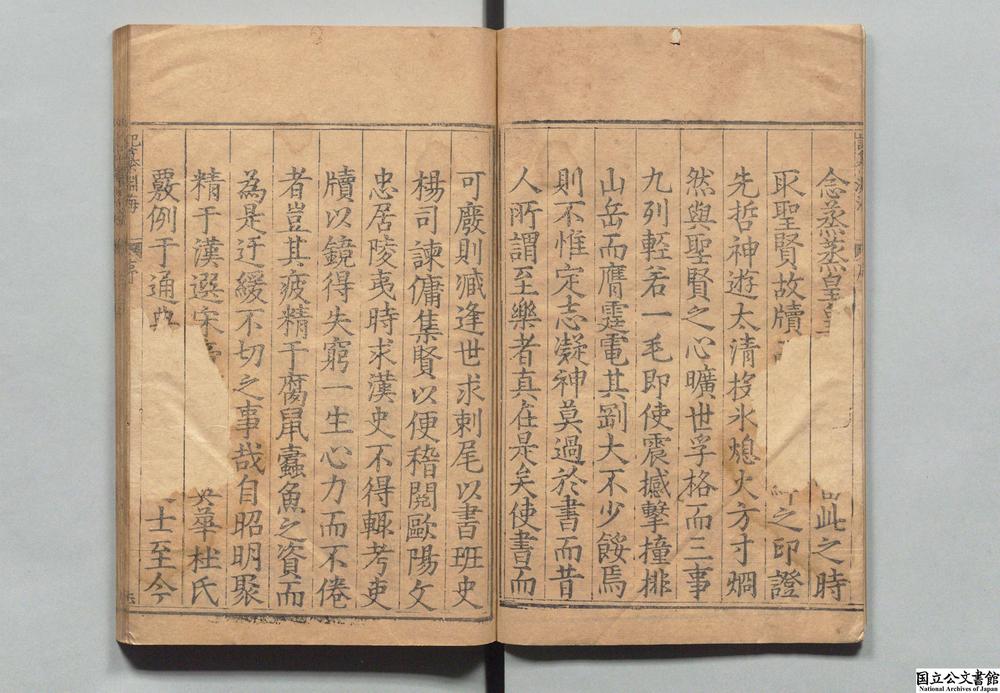 念蒸蒸皇皇此之時
取聖賢故牘之印證
先哲神遊太清投氷熄火方寸烱
然與聖賢之心曠世孚格而三事
九列輕若一毛即使震撼擊撞排
山岳而鴈霆電其劉大不少餒焉
則不惟定志凝神莫過於書而昔
人所謂至樂者真在是矣使書而
可廢則臧逢世求刺尾以書班史
楊司諫傭集賢以便稽閱歐陽文
忠居陵夷時求漢史不得輒考吏
牘以鏡得失窮一生心力而不倦
者豈其疲精于腐鼠蠹魚之資而
為是迂緩不切之事哉自昭明聚
精于漢選宋華杜氏
覈例于通典士至今
記纂淵海
序
国立公文書館
National Archives of Japan